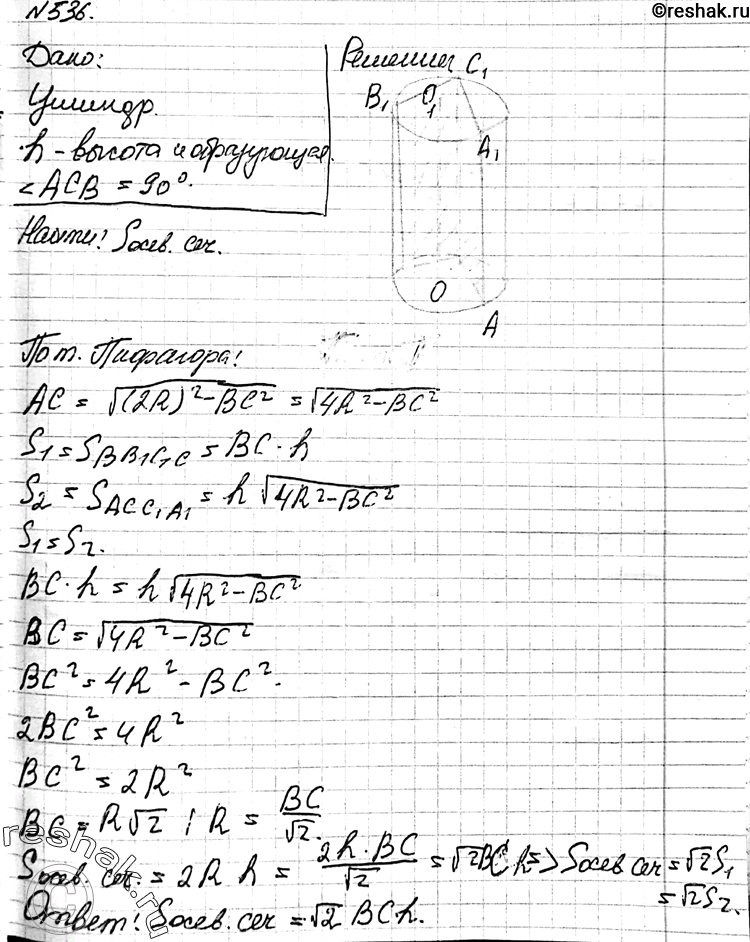 ©reshak.ru
№536.
Дано:
Цилиндр.
h - высота и образующая.
∠ACB = 90°.
Найти: Sосев. сеч.
Решение
C₁
B₁
O₁
A₁
O
A
По т. Пифагора:
AC = √((2R)² - BC²) = √(4R² - BC²)
S₁ = S_BB₁C₁C = BC · h
S₂ = S_ACC₁A₁ = h √(4R² - BC²)
S₁ = S₂.
BC · h = h √(4R² - BC²)
BC = √(4R² - BC²)
BC² = 4R² - BC².
2BC² = 4R²
BC² = 2R²
BC = R√2 ; R = BC/√2.
Sосев. сеч. = 2R h = 2h · BC/√2 = √2BC h => Sосев сеч = √2S₁
= √2S₂.
Ответ: Sосев. сеч = √2 BCh.
reshak.ru